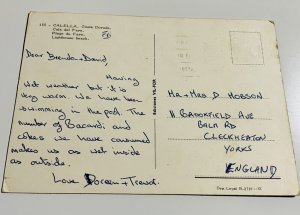 118 - CALELLA. Costa Dorada.
Cala del Faro.
Plage du Faro.
Lighthouse beach.
Dear Brenda + David,
Having
Hot weather but it is
very warm we have been
swimming in the pool. The
number of Bacardi and
cokes we have consumed
makes us as wet inside
as outside.
Love Doreen + Trevor.
Mr + Mrs D HOBSON
11 BROOKFIELD AVE
CLECKHEATON
YORKS
ENGLAND